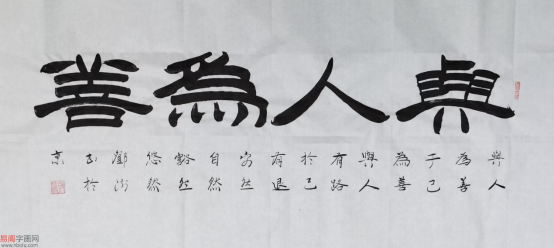 與人為善
與人
為善
于己
為善
與人
有路
於己
有退
安然
自然
豁然
悠然
書於
京
易阁字画网